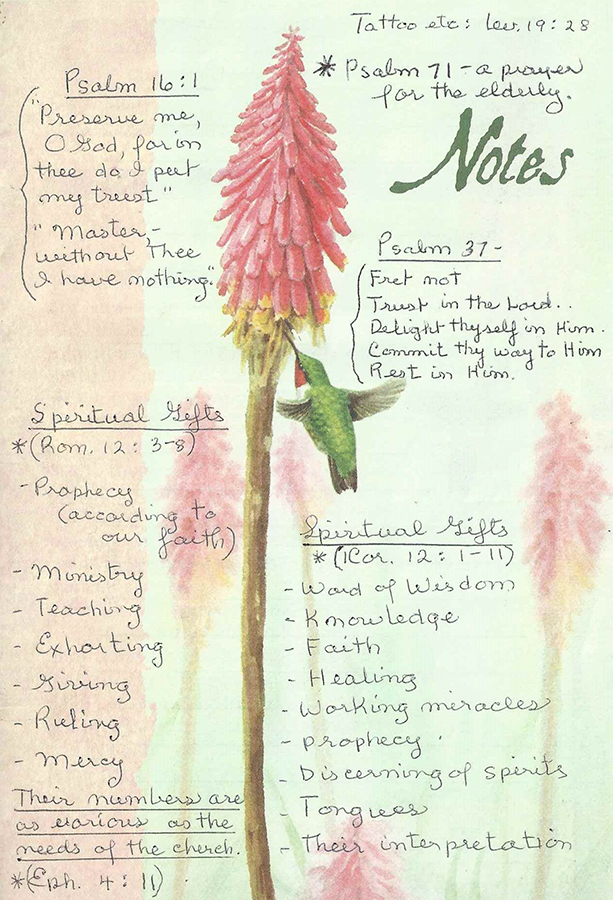 Tattoo etc: Lev. 19:28
* Psalm 71 - a prayer
for the elderly.
Notes
Psalm 16:1
"Preserve me,
O God, for in
thee do I put
my trust"
"Master, -
without Thee
I have nothing."
Psalm 37 -
Fret not
Trust in the Lord..
Delight thyself in Him.
Commit thy way to Him
Rest in Him.
Spiritual Gifts
* (Rom. 12: 3-8)
- Prophecy
(according to
our faith)
- Ministry
- Teaching
- Exhorting
- Giving
- Ruling
- Mercy
Their numbers are
as various as the
needs of the church.
* (Eph. 4: 11)
Spiritual Gifts
* (1Cor. 12: 1-11)
- Word of Wisdom
- Knowledge
- Faith
- Healing
- Working miracles
- Prophecy
- Discerning of spirits
- Tongues
- Their interpretation